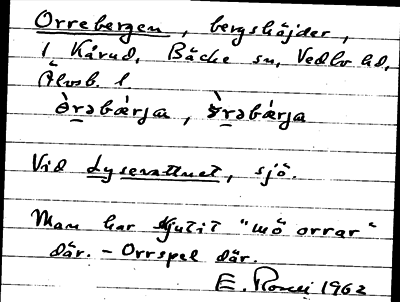 Orrebergen, bergshöjder,
i Kårud, Bäcke sn, Vedbo hd,
Älvsb. l
òrəbæ̀rja, òrəbæ̀rja
Vid Lysevattnet, sjö.
Man har skjutit "mö orrar"
där. – Orrspel där.
E. 1962